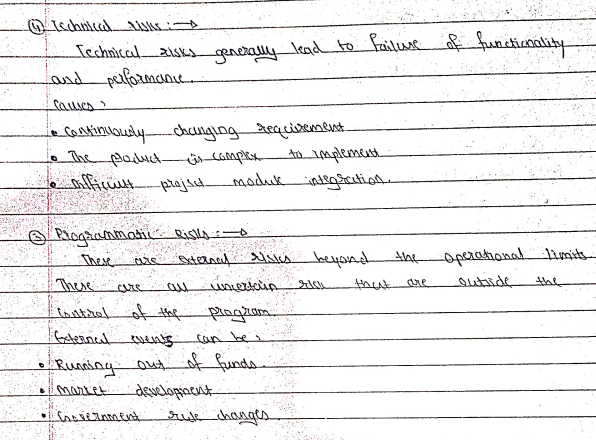 ④ Technical risks :→
Technical risks generally lead to failure of functionality
and performance.
Causes :
• Continuously changing requirement
• The product is complex to implement
• Difficult project module integration.
⑤ Programmatic Risks :→
These are external risks beyond the operational limits.
These are all uncertain risk that are outside the
control of the program.
External events can be :
• Running out of funds.
• Market development
• Government rule changes